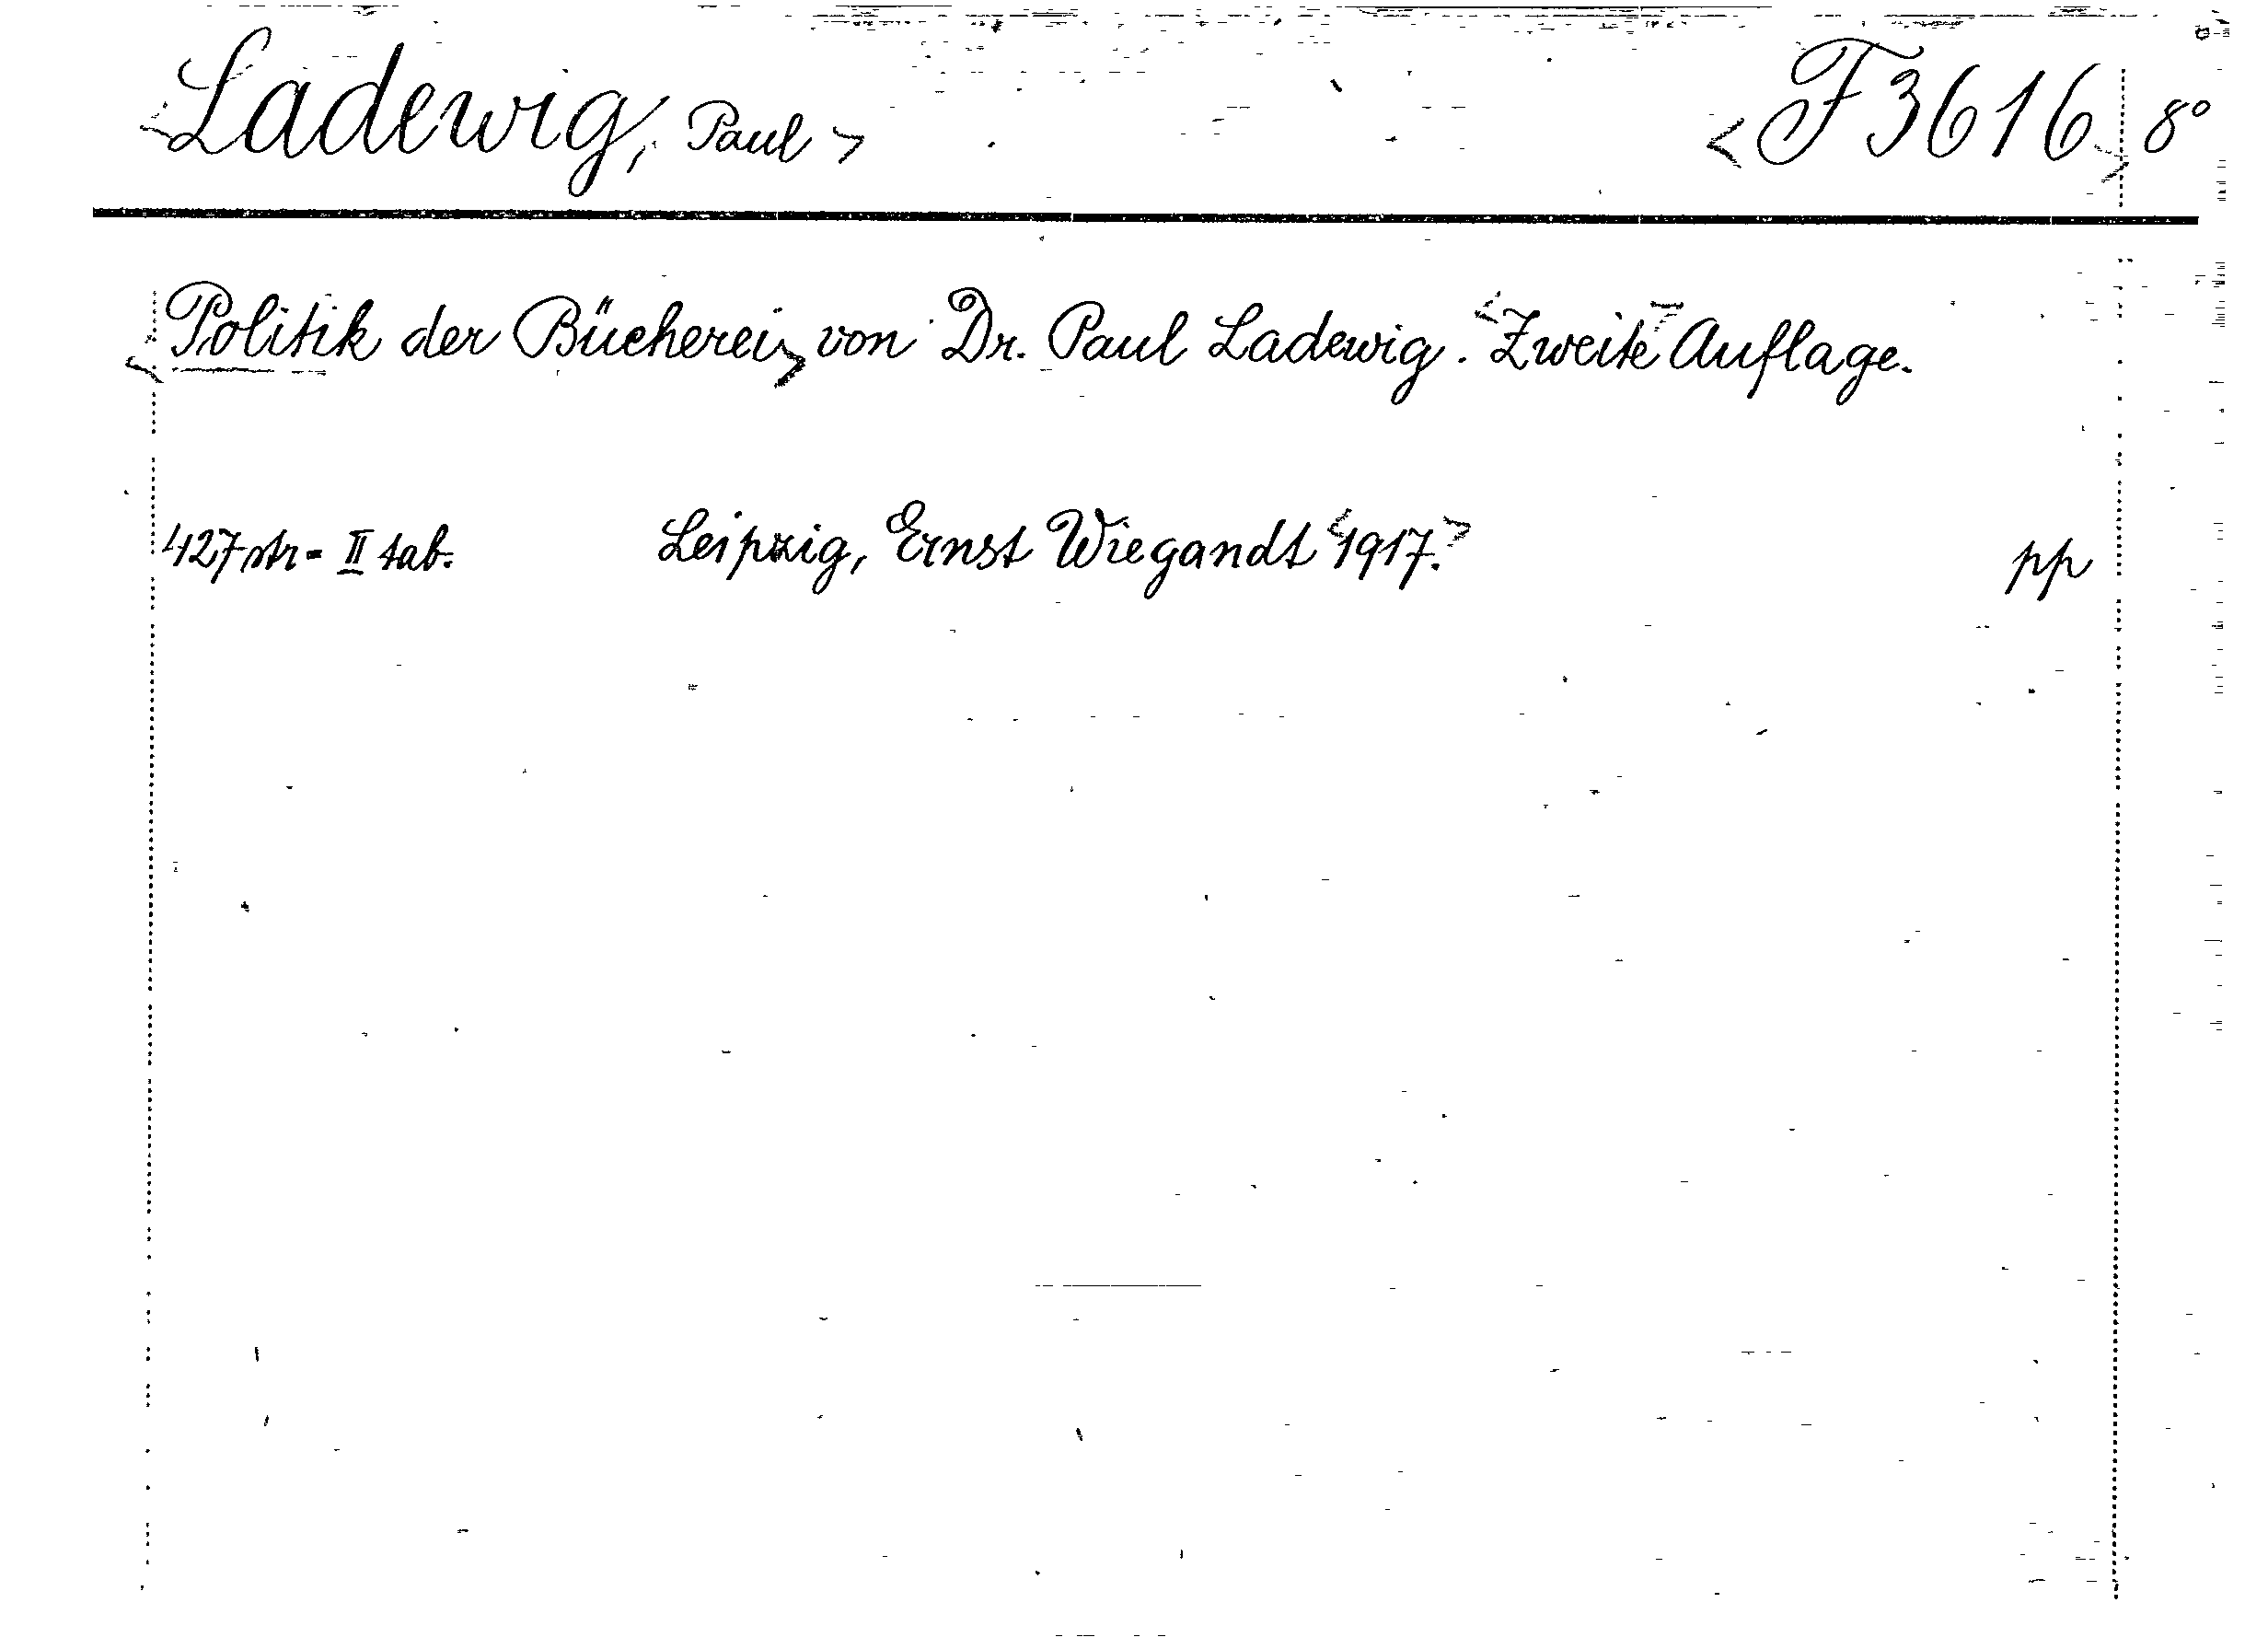 <Ladewig, Paul> <F 3616> 8°
<Politik der Bücherei> von Dr. Paul Ladewig. <Zweite> Auflage.
427 str - II tab. Leipzig, Ernst Wiegandt <1917.> pp